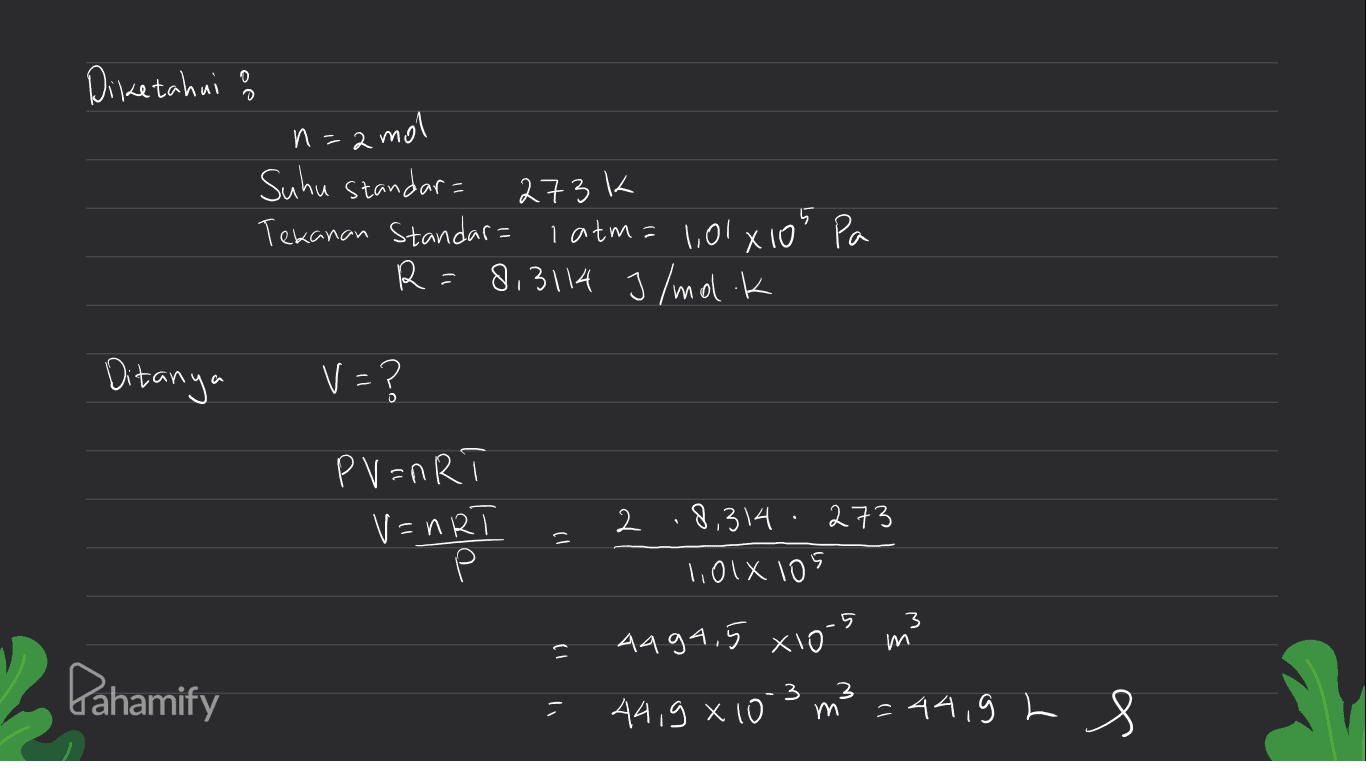 Diketahui :
n = 2 mol
Suhu standar = 273 K
Tekanan Standar = 1 atm = 1,01 x 10⁵ Pa
R = 8,3114 J/mol.k
Ditanya V = ?
PV = nRT
V = nRT/P = 2 . 8,314 . 273 / 1,01 x 10⁵
= 4494,5 x10⁻⁵ m³
= 44,9 x 10⁻³ m³ = 44,9 L
Pahamify